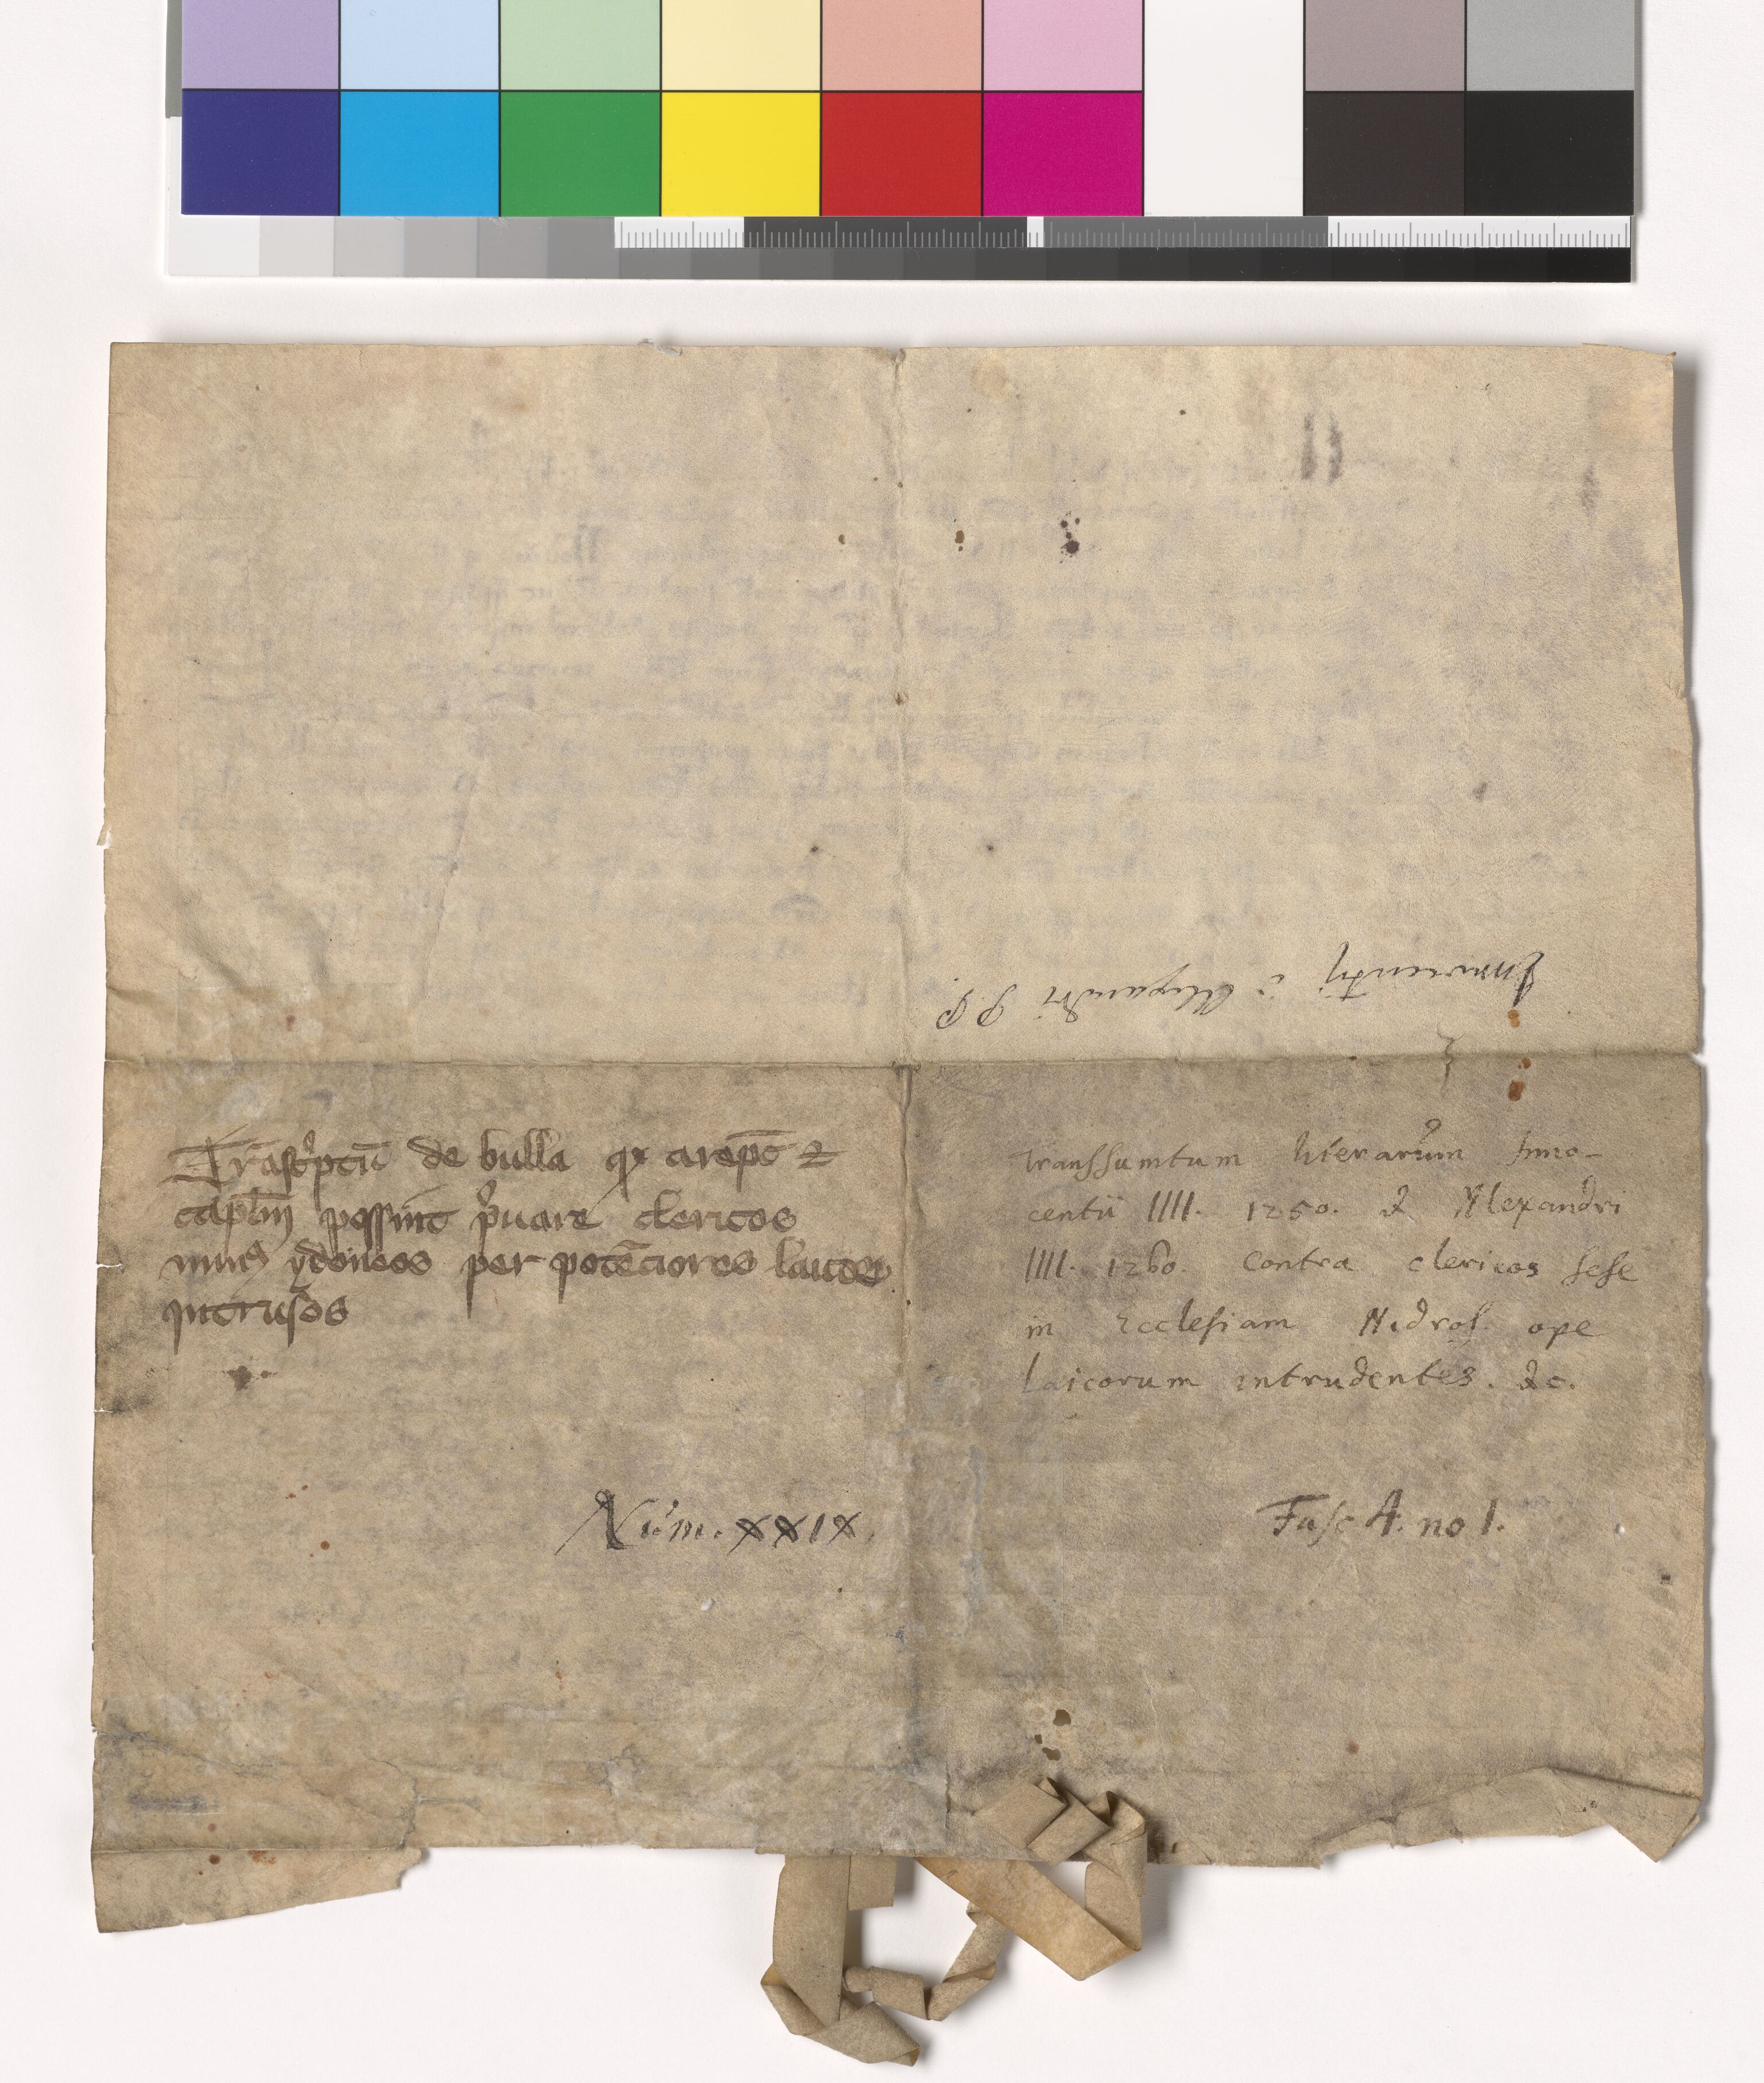 Innocentij & Alexandri P.P.
Trãsc'ptũ de bulla q archiepc ⁊
caplm possint p'uare clericos
minꝰ ydoneos per potẽciores laicos
intrusos
Transsumtum literarum Inno-
centii IIII. 1250. & Alexandri
IIII. 1260. contra clericos sese
in Ecclesiam Nidros. ope
laicorum intrudentes. &c.
Num. XXIX.
Fasc A. no 1.